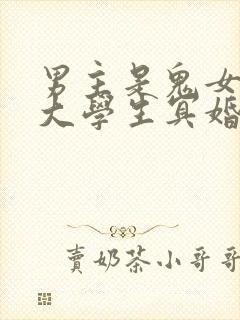 男主是鬼女
大學生冥婚
賣奶茶小哥哥